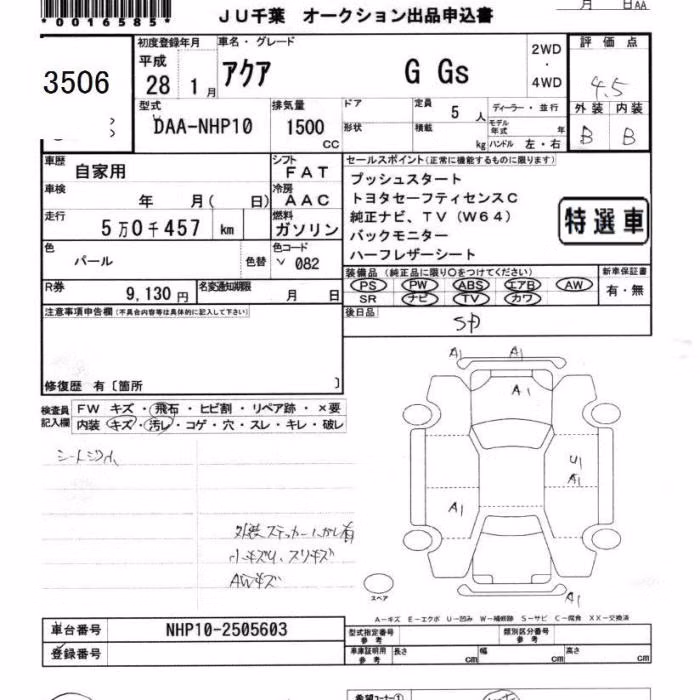 *0016585*
JU千葉 オークション出品申込書
月 日AA
3506
初度登録年月 車名・グレード 2WD・4WD 評価点
平成 28 1月 アクア G Gs 4.5
型式 排気量 ドア 定員 5 人 ディーラー・並行 外装 内装
DAA-NHP10 1500 CC 形状 積載 kg モデル年式 年 B B
ハンドル 左・右
車歴 自家用 シフト FAT セールスポイント(正常に機能するものに限ります)
車検 年 月( 日) 冷房 AAC プッシュスタート
トヨタセーフティセンスC
走行 5万0千457 km 燃料 ガソリン 純正ナビ、TV(W64) 特選車
バックモニター
色 パール 色替 色コード 082 ハーフレザーシート
装備品(純正品に限り○をつけてください) 新車保証書
R券 9,130円 名変通知期限 月 日 PS PW ABS エアB AW 有・無
SR ナビ TV カワ
注意事項申告欄(不具合内容等は具体的に記入して下さい) 後日品 SP
修復歴 有〔箇所 〕
検査員記入欄 FW キズ・飛石・ヒビ割・リペア跡・×要
内装 キズ・汚レ・コゲ・穴・スレ・キレ・破レ
A1 A1
A1
U1
A1
A1
A1
外装ステッカーはがし有
小キズU、スリキズ
AWキズ
スペア
A-キズ E-エクボ U-凹み W-補修跡 S-サビ C-腐食 XX-交換済
車台番号 NHP10-2505603 型式指定番号 参考 類別区分番号 参考
登録番号 車庫証明用 参考 長さ cm 幅 cm 高さ cm
希望コーナー①